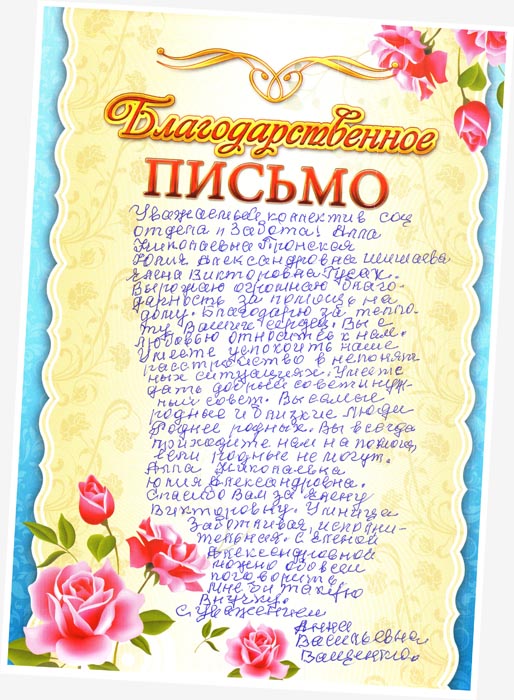 Благодарственное
ПИСЬМО
Уважаемый коллектив соц
отдела "Забота! Алла
Николаевна Пронская
Юлия Александровна Шишаева
Елена Викторовна Гусах.
Выражаю огромною благо-
дарность за помощь на
дому. Благодарю за тепло-
ту Ваших сердец. Вы с
любовью относитесь к нам.
Умеете успокоить наше
расстройство в непонят
ных ситуациях. Умеете
дать добрый совет и нуж-
ный совет. Вы самые
родные и близкие люди
Роднее родных. Вы всегда
приходите нам на помощь,
если родные не могут.
Алла Николаевна
Юлия Александровна.
Спасибо Вам за Елену
Викторовну. Умница
Заботливая, исполни-
тельная. С Еленой
Александровной
можно обо всем
поговорить
Мне бы такую
Внучку.
С уважением
Анна
Васильевна